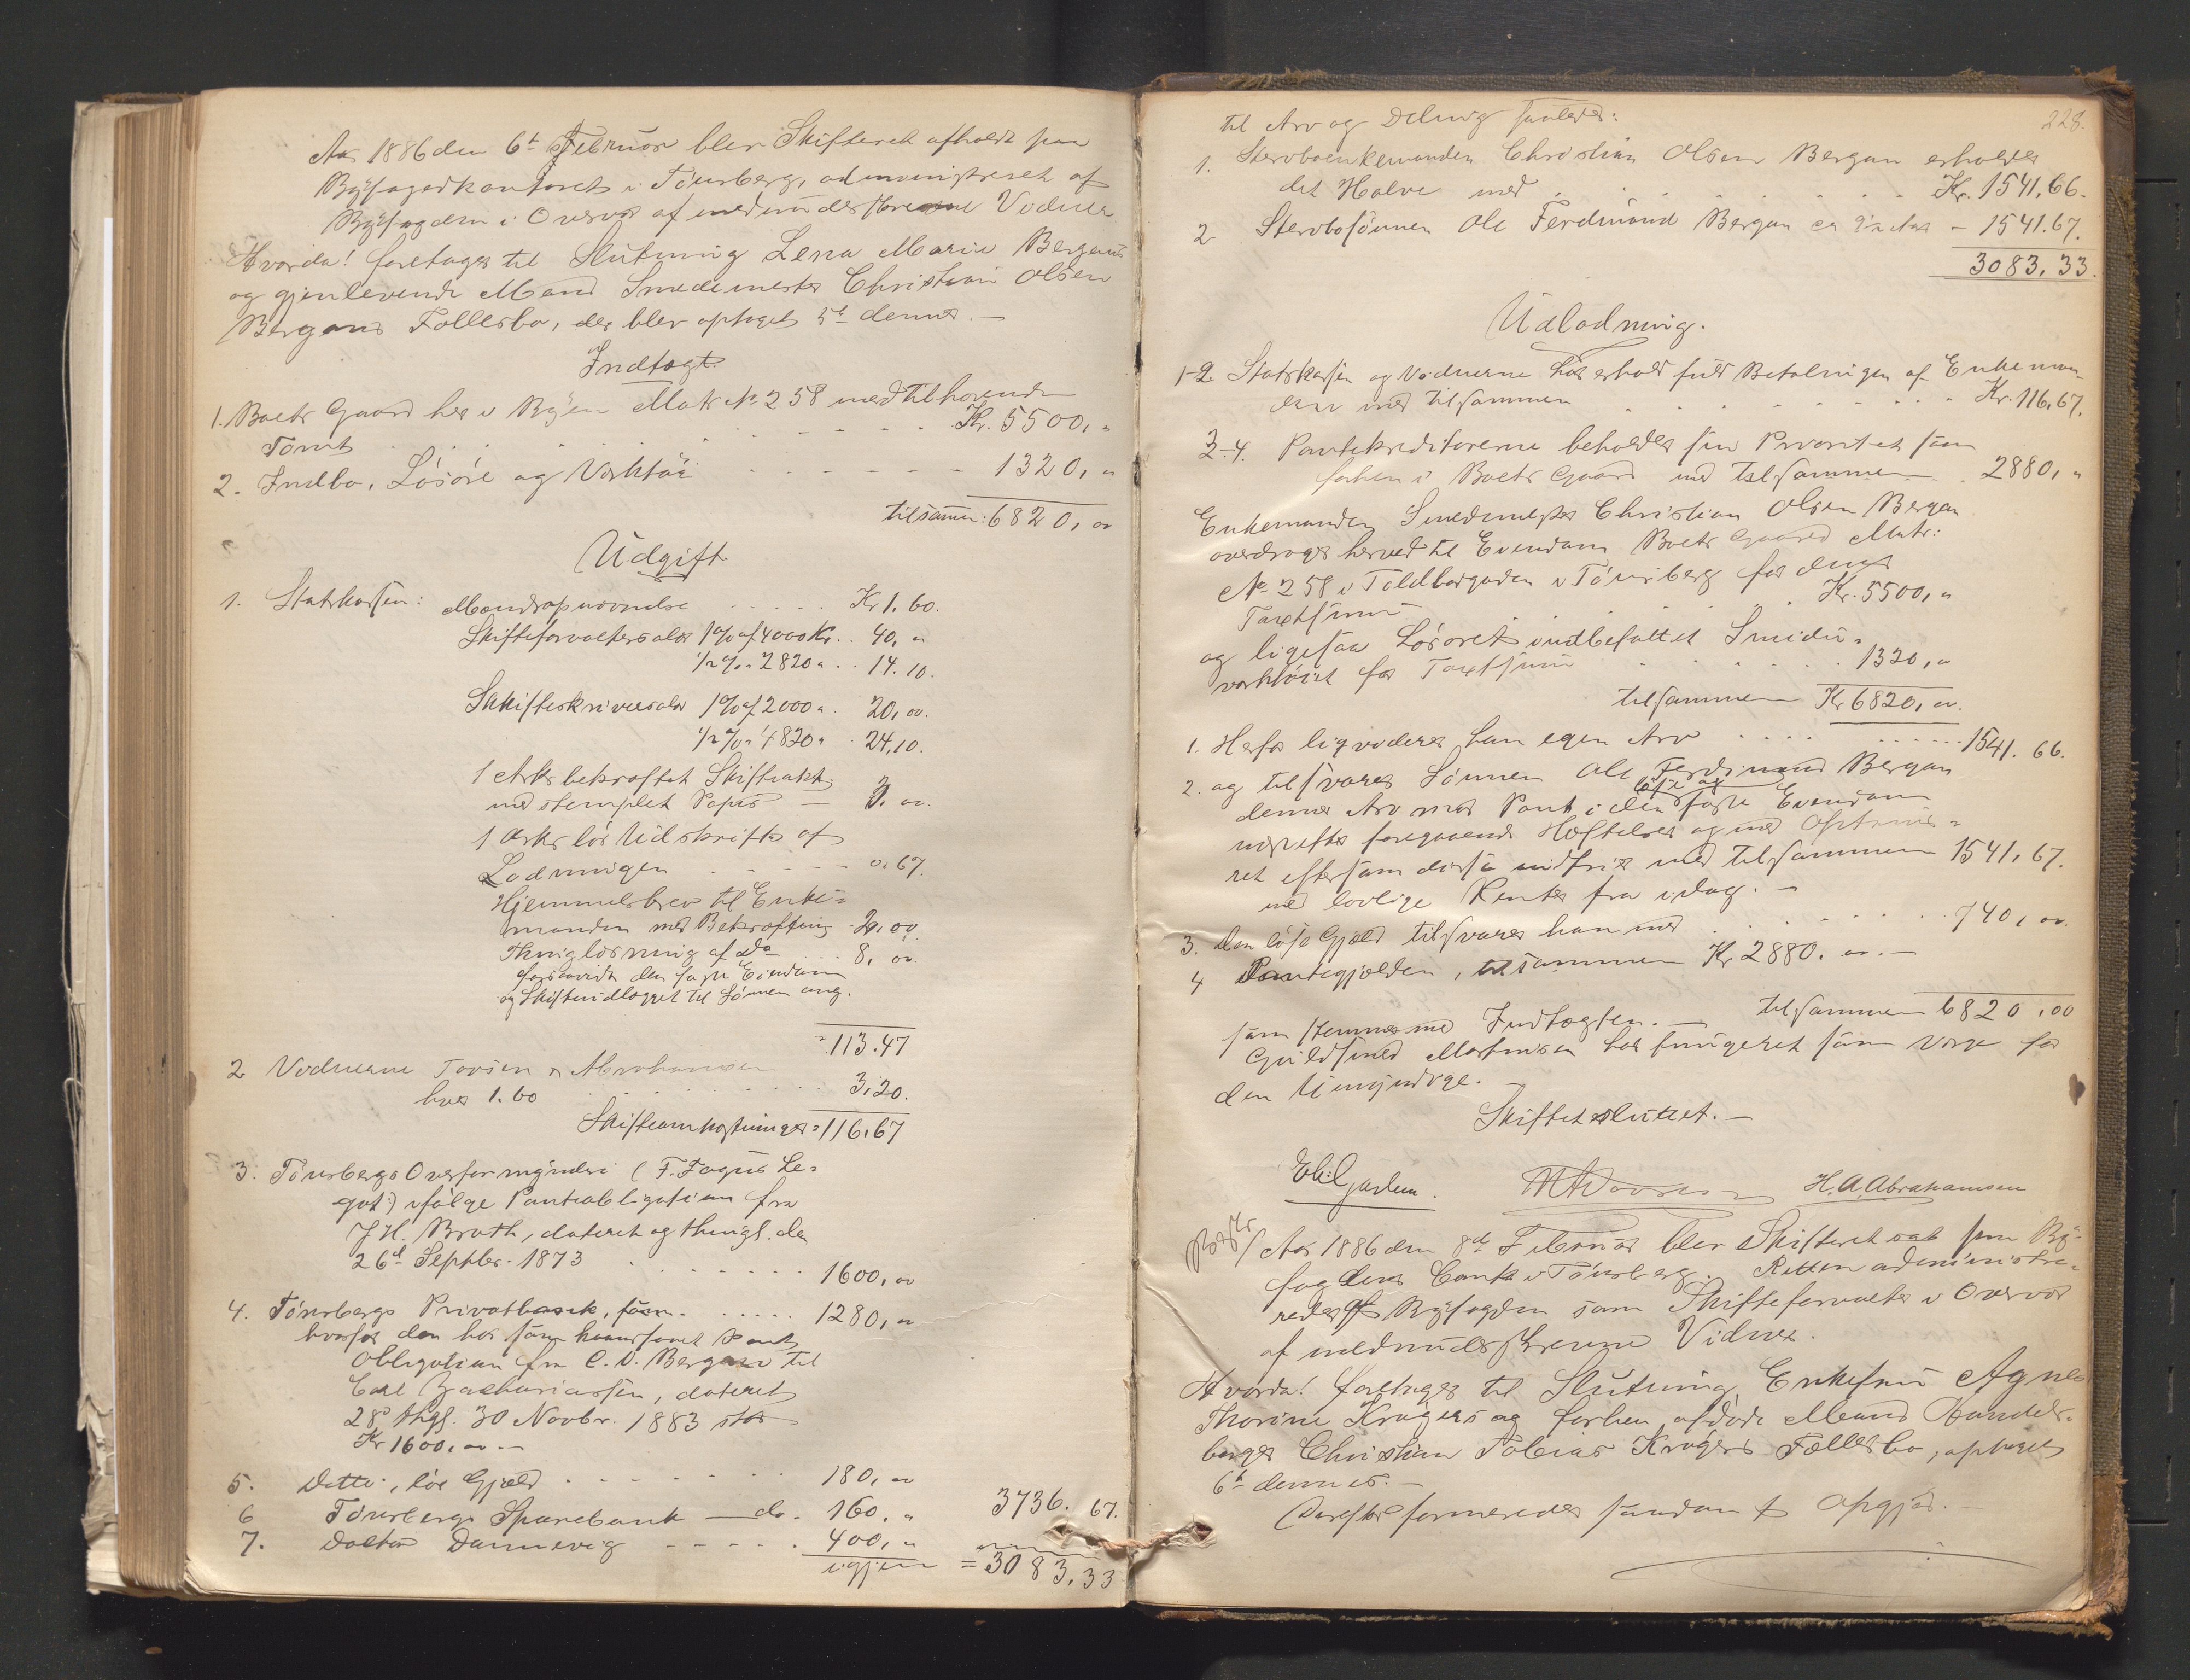 Aar 1886 den 6t Februar blev Skifteret afholdt paa
Byfogedkontoret i Tönsberg, administreret af
Byfogden i Overvær af medunderskrevne Vidner.
Hvorda! foretages til Slutning Lena Marie Bergans
og gjenlevende Mand Smedemester Christian Olsen
Bergans Fællesbo, der blev optaget 5t dennes. —
Indtægt.
1. Boets Gaard her i Byen Matr No 258 med tilhørende
Tomt . . . . . Kr. 5500, "
2. Indbo, Lösöre og Værktöi - - - - - 1320, "
tilsamm: 6820, 00
Udgift.
1. Statskassen: Mandsopnævnelse . . . . . Kr 1. 60.
Skifteforvaltersalær 1% af 4000 Kr. . . 40, "
1/2 % " 2820 " . . 14. 10.
Skifteskriversalær 1% af 2000 " . 20, 00.
1/2 % " 4820 " . 24. 10.
1 Arks bekræftet Skifteakt
med stemplet Papir — 3. 00.
1 Arks lös Udskrift af
Lodningen . . . . . 0. 67.
Hjemmelsbrev til Enke=
manden med Bekræftning - 2, 00
Thinglæsning af Do . . . 8, 00.
forsaavidt den faste Eiendom
og Skifteudlægget til Sönnen ang.
113. 47
2 Vidnerne Tovsen & Abrahamsen
hver 1. 60 . . . . . 3, 20.
Skifteomkostninger = 116, 67
3. Tönsbergs Overformynderi (F. Foyns Le=
gat:) ifölge Panteobligation fra
J H. Broth, dateret og thingl. den
26d Septbr. 1873 . . . . . 1600, 00
4. Tönsbergs Privatbank, . . . . . 1280, "
hvorfor den har som haandfaaet Pant
Obligation fra C. O. Bergan til
Carl Zachariassen, dateret
28, thgl. 30 Novbr. 1883 stor
Kr 1600, 00 —
5. Ditto, lös Gjæld . . . . . 180, 00
6 Tönsbergs Sparebank — do. 160. " 3736. 67.
7. Doctor Dannevig - - - - - 400, "
igjen = 3083, 33
228.
til Arv og Deling saaledes:
1. Stervboenkemanden Christian Olsen Bergan erholder
det Halve med . . . . . Kr. 1541, 66.
2 Stervbosönnen Ole Ferdinand Bergan ca 9 1/2 Aar - 1541. 67.
3083, 33.
Udlodning.
1-2 Statskassen og Vidnerne har erholdt fuld Betalingen af Enkeman-
den med tilsammen . . . . . Kr. 116, 67.
3-4. Pantekreditorerne beholder sin Prioritet som
forhen i Boets Gaard med tilsammen . . 2880, "
Enkemanden Smedemester Christian Olsen Bergan
overdrages herved til Eiendom Boets Gaard Matr:
No 258 i Toldbodgaden i Tönsberg for dens
Taxtsum . . . . . Kr. 5500, "
og ligesaa Lösöret indbefattet Smedie=
værktöiet for Taxtsum . . . . . 1320, "
tilsammen Kr 6820, 00.
1. Herfor liqviderer han egen Arv . . . . . 1541. 66.
2. og tilsvarer Sönnen Ole Ferdinand Bergan
dennes Arv mod Pant i den löse og faste Eiendom
næstefter foregaaende Hæftelser og med Optrin=
ret eftersom disse indfries med tilsammen 1541, 67.
med lovlige Renter fra idag. —
3. Den löse Gjæld tilsvarer han med . . . . . 740, 00.
4 Pantegjælden, tilsammen Kr 2880. 00. —
tilsammen 6820, 00
som stemmer med Indtægten. —
Guldsmed Martinsen har fungeret som Værge for
den Umyndige. —
Skiftet sluttet. —
H. A. Abrahamsen
Aar 1886 den 8de Februar blev Skifteret sat paa By-
fogdens Contor i Tönsberg. Retten administre-
redes af Byfogden som Skifteforvalter i Overvær
af medunderskrevne Vidner.
Hvorda! foretages til Slutning Enkefru Agnes
Thorine Krögers og forhen afdöde Mand Handels-
borger Christian Tobias Krögers Fællesbo, optaget
6t dennes. —
Derefter formeredes saadant Opgjör. —